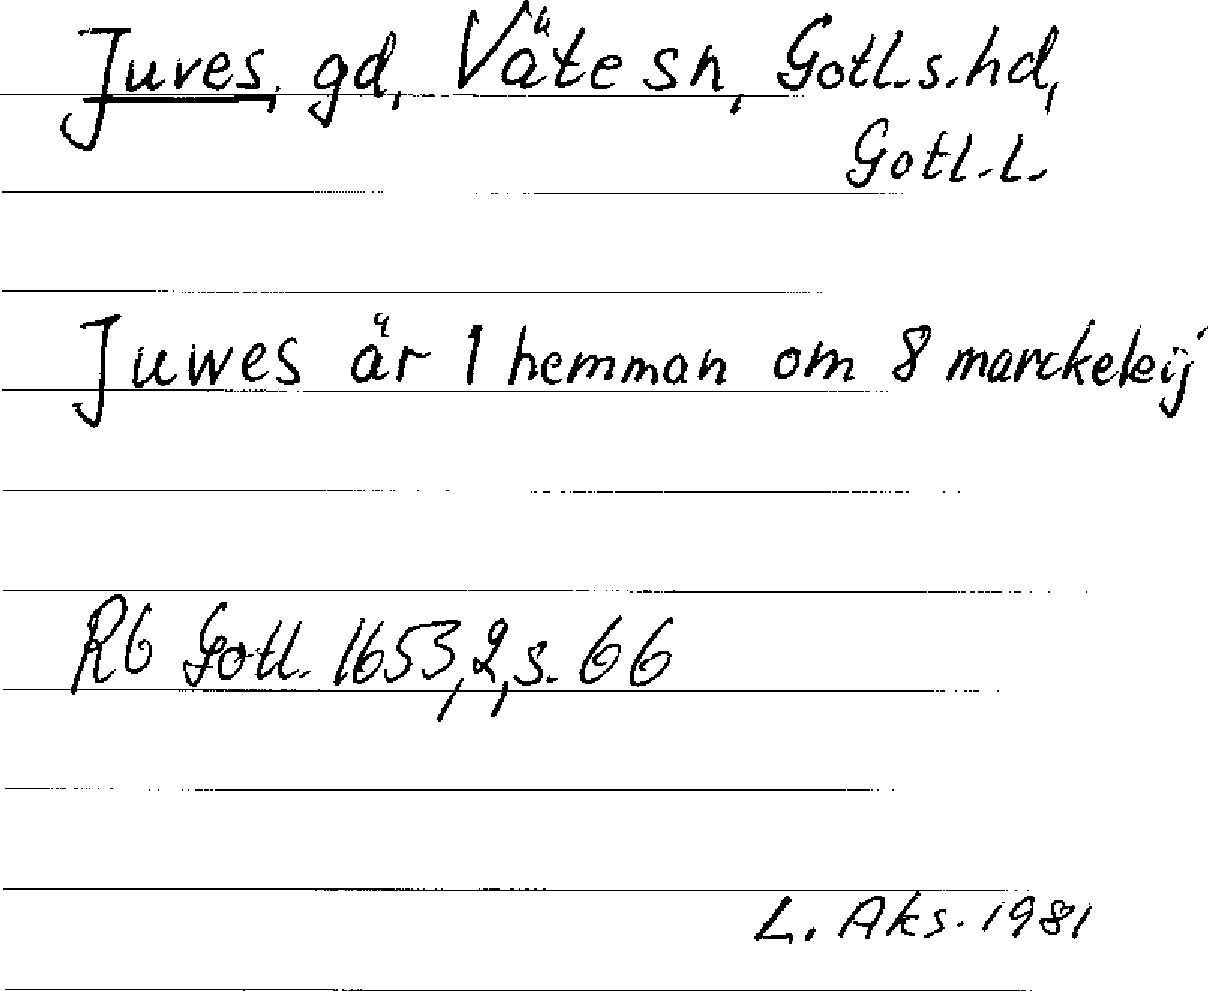 Juves, gd, Väte sn, Gotl. s. hd,
Gotl. l.
Juwes är 1 hemman om 8 marckeleij
Rb Gotl. 1653,2,s. 66
L. Aks. 1981